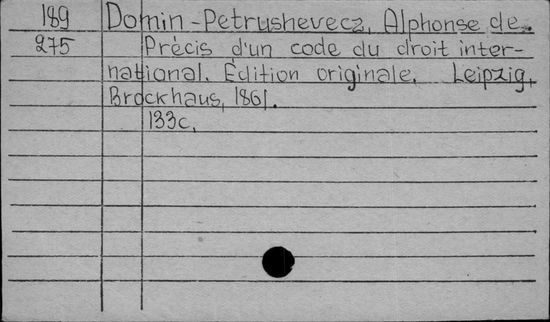 189 Domin-Petrushevecz, Alphonse de.
275 Précis d'un code du droit inter-
national. Édition originale. Leipzig,
Brockhaus, 1861.
133c.